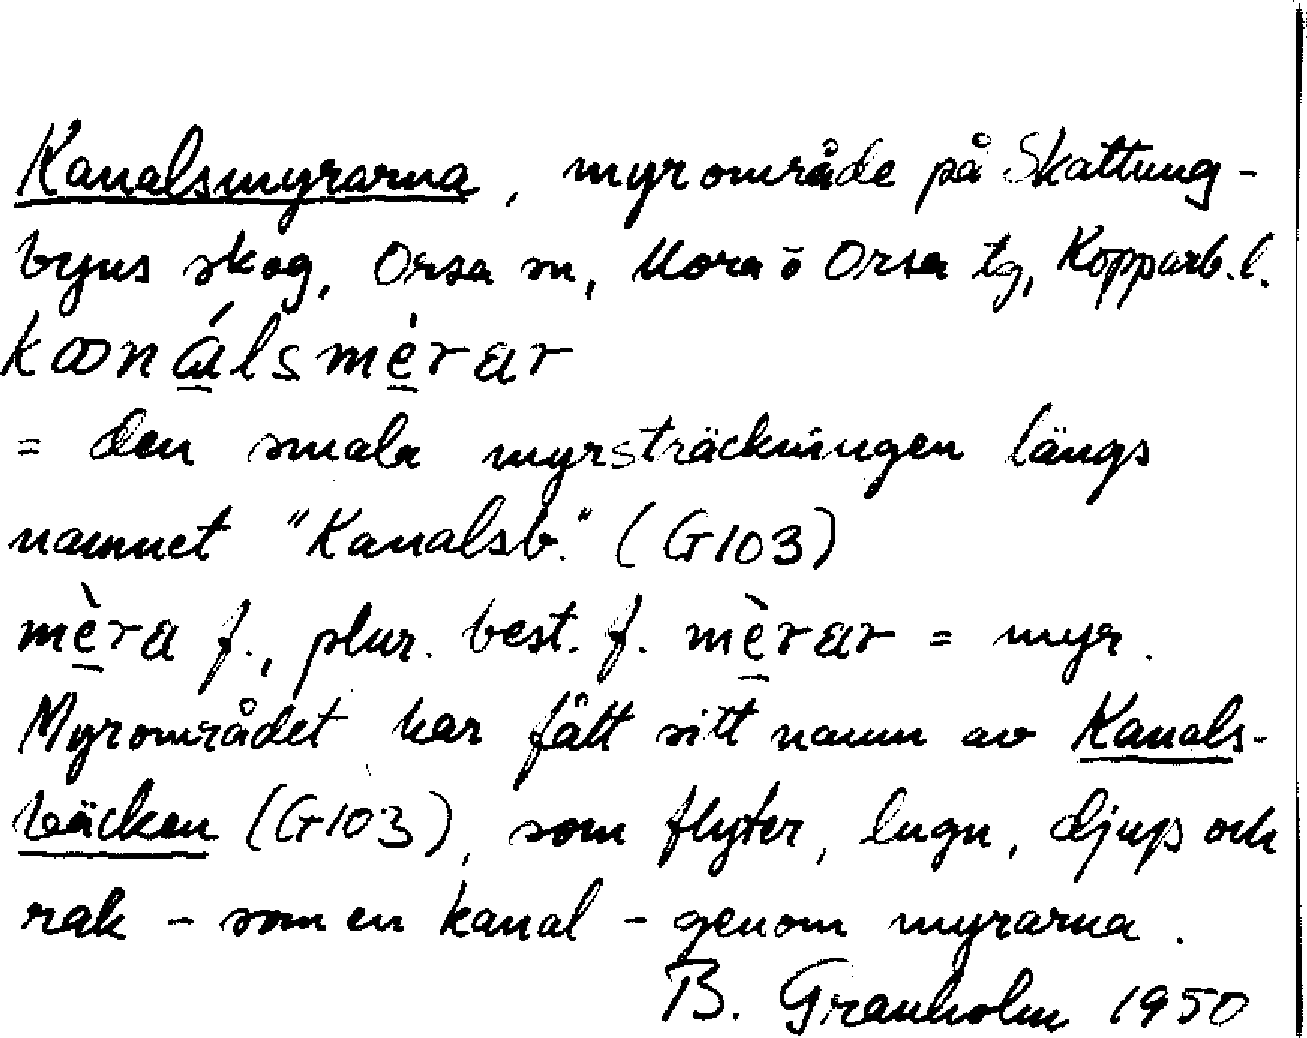 Kanalsmyrarna, myrområde på Skattung-
byns skog, Orsa sn, Mora o Orsa tg, Kopparb. l.
kanálsmèrar
= den smala myrsträckningen längs
namnet "Kanalsb." (G103)
mèra f., plur. best. f. mèrar = myr.
Myrområdet har fått sitt namn av Kanals-
bäcken (G103), som flyter, lugn, djup och
rak - som en kanal - genom myrarna.
B. Granholm 1950